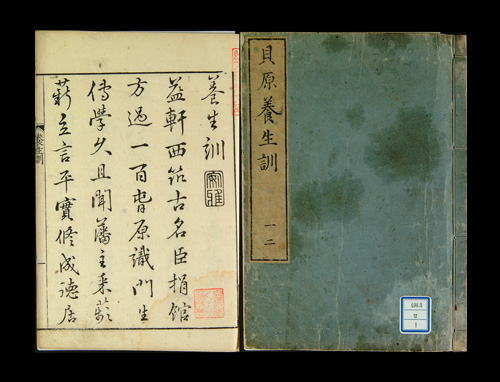 貝原養生訓
一二
1
養生訓
益軒西筑古名臣捐館
方過一百原識門生
傳學久且聞藩主采
立言平實修成德居
養生訓